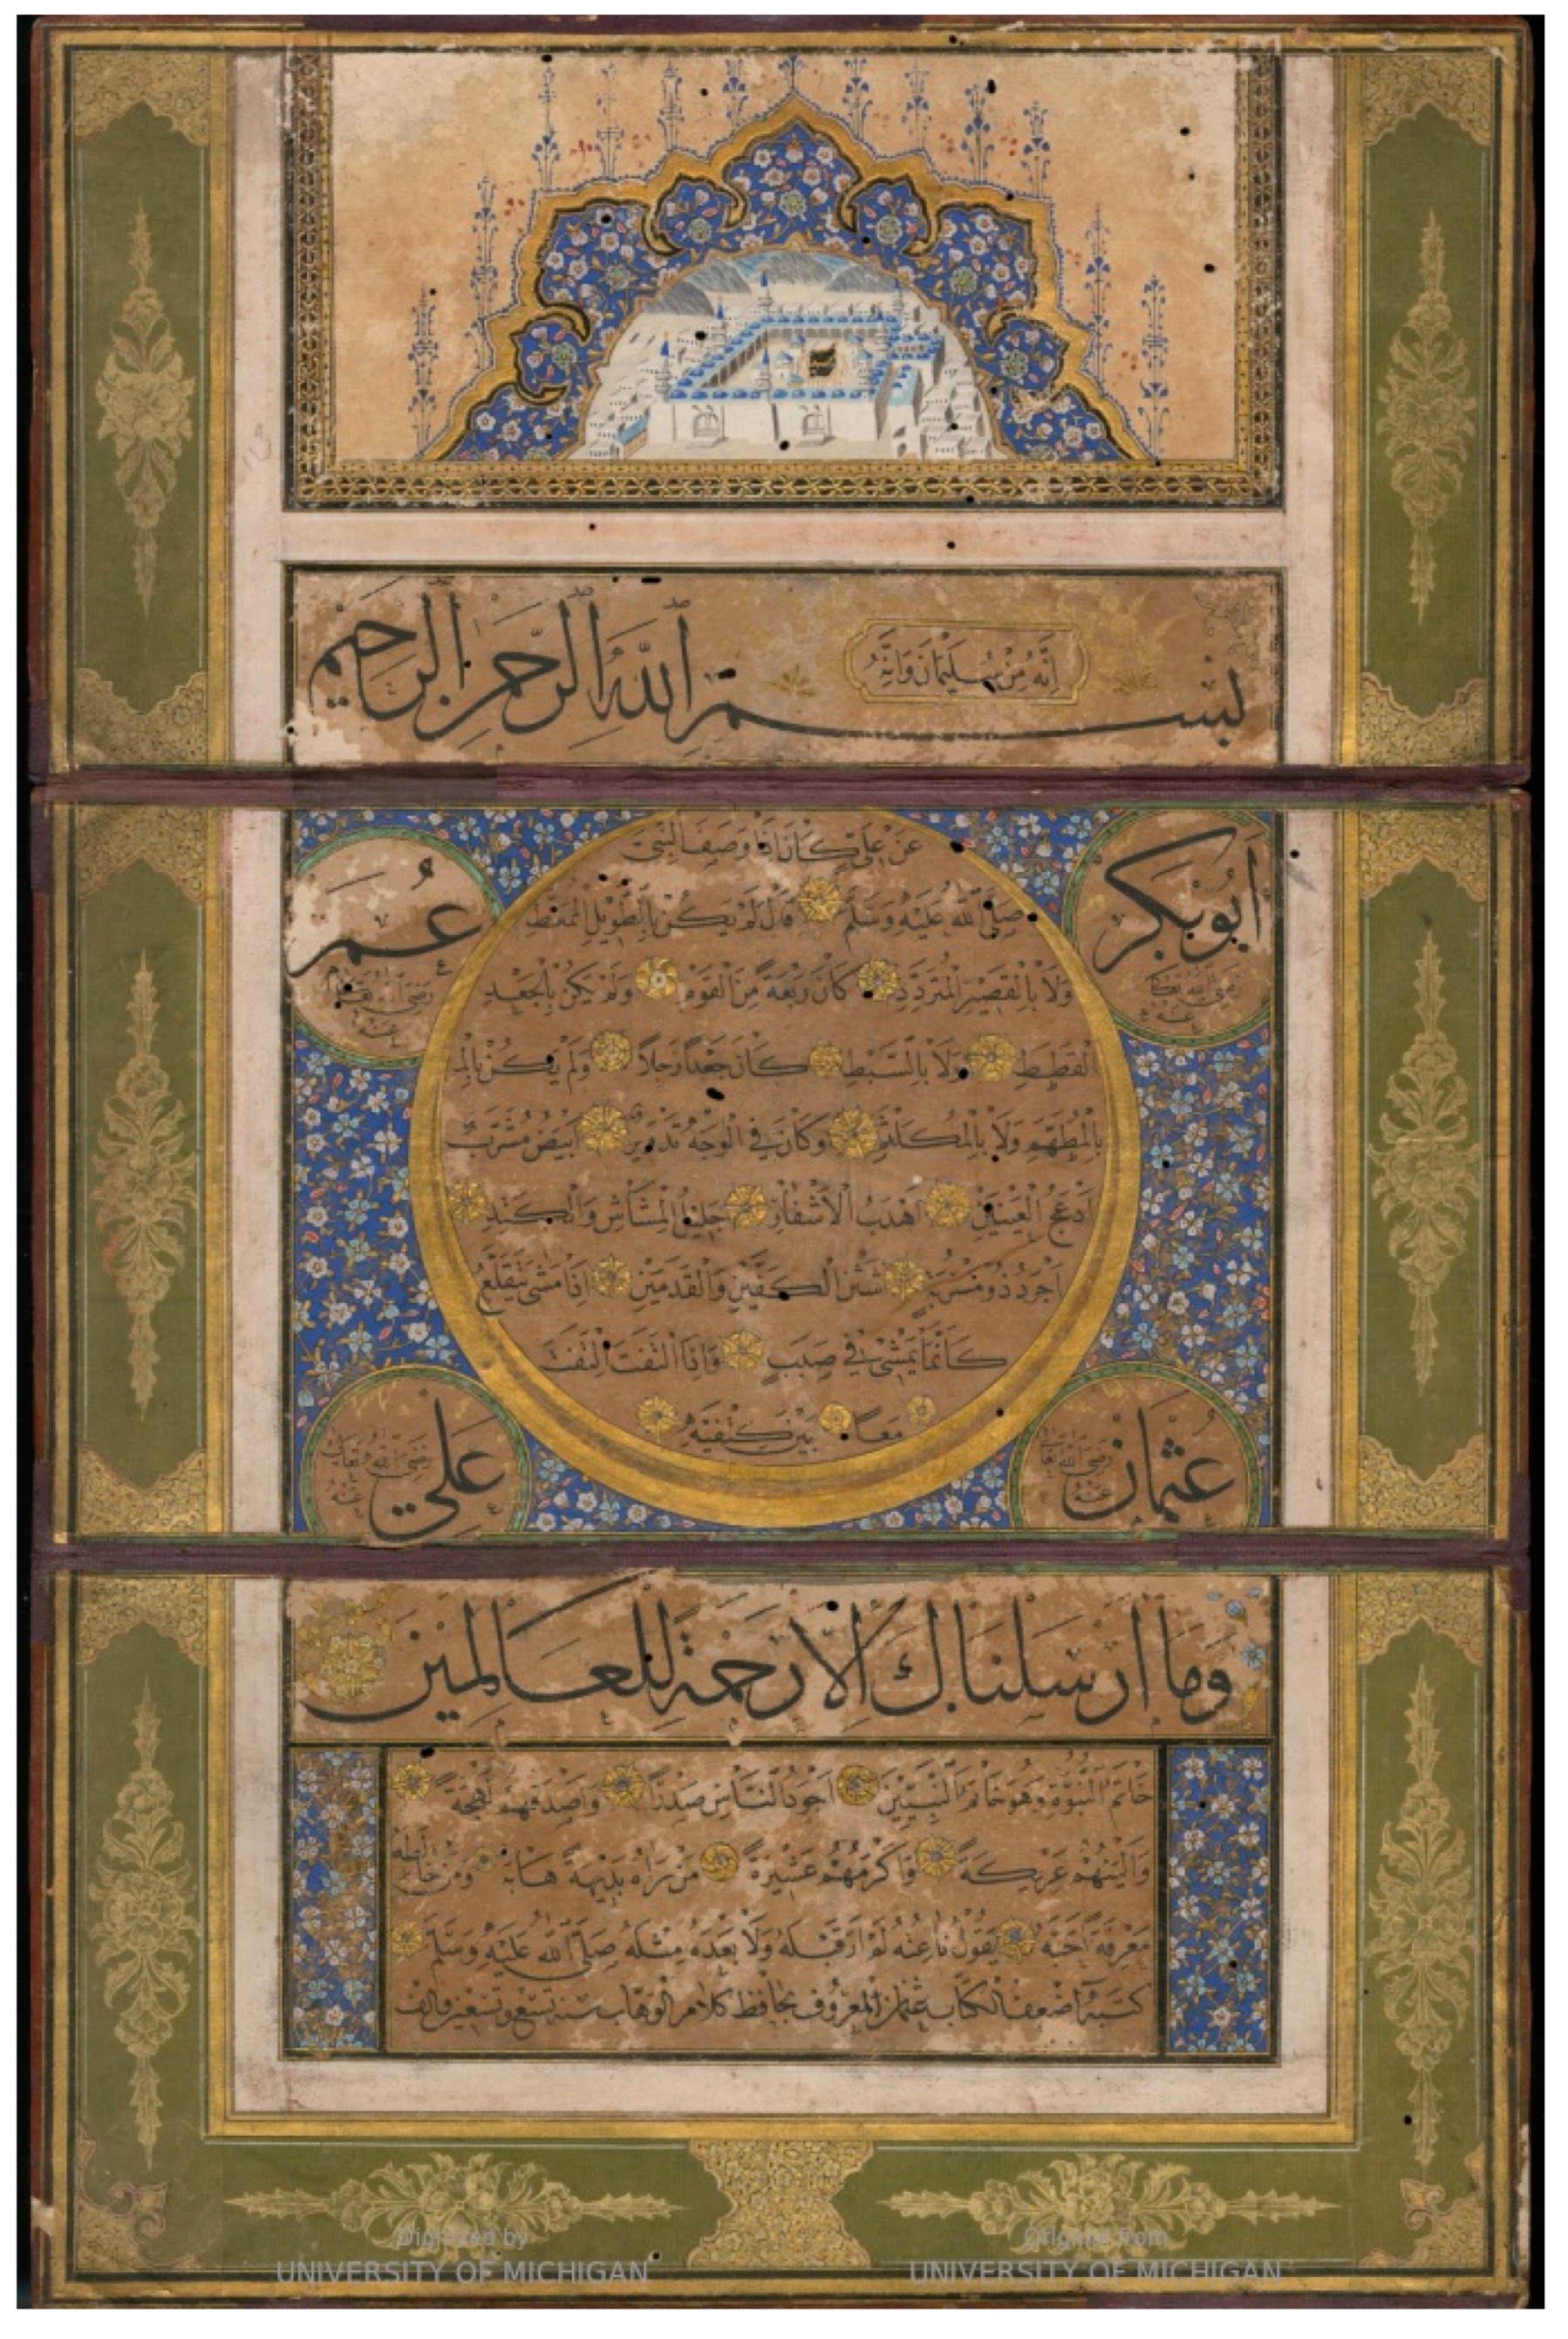 بسم الله الرحمن الرحيم
إنه من سليمان وانه
ابو بكر
رضى الله تعالى
عنه
عمر
رضى الله تعالى
عنه
عن على كان اذا وصف النبى
صلى الله عليه وسلم قال لم يكن بالطويل الممغط
ولا بالقصير المتردد كان ربعة من القوم ولم يكن بالجعد
القطط ولا بالسبط كان جعدا رجلا ولم يكن بالم
بالمطهم ولا بالمكلثم وكان فى الوجه تدوير ابيض مشرب
ادعج العينين اهدب الاشفار جليل المشاش والكتد
اجرد ذو مسربة شثن الكفين والقدمين اذا مشى يتقلع
كانما يمشى فى صبب واذا التفت التفت
معا بين كتفيه
عثمان
رضى الله تعالى
عنه
على
رضى الله تعالى
عنه
وما ارسلناك الا رحمة للعالمين
خاتم النبوة وهو خاتم النبيين اجود الناس صدرا واصدقهم لهجة
والينهم عريكة واكرمهم عشيرة من راه بديهة هابه ومن خالطه
معرفة احبه يقول ناعته لم ار قبله ولا بعده مثله صلى الله عليه وسلم
كتبه اضعف الكتاب عثمان المعروف بحافظ كلام الوهاب سنة تسع وتسعين والف
Digitized by
UNIVERSITY OF MICHIGAN
Original from
UNIVERSITY OF MICHIGAN